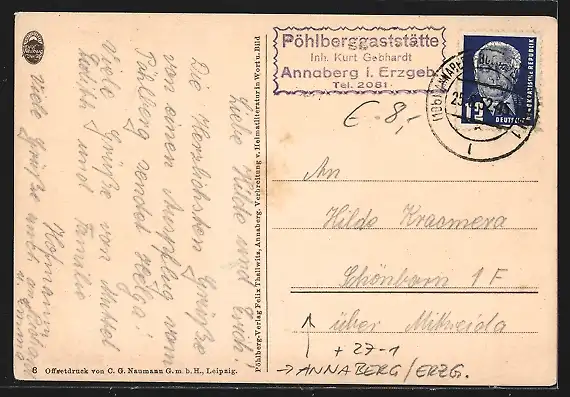 Pöhlberggaststätte
Inh. Kurt Gebhardt
Annaberg i. Erzgeb.
Tel. 2081
DEUTSCHE DEMOKRATISCHE REPUBLIK
12
€ -8,-
An
Hilde Krasmera
Schönborn 1 F
über Mittweida
+ 27-1
→ ANNABERG/ERZG.
Liebe Hilde und Erich!
Die herzlichsten Grüße
von einem Ausflug vom
Pöhlberg sendet Helga!
Viele Grüße von Muttel
und Familie
Hofmann
Viele Grüße auch
u. Emma
Pöhlberg-Verlag Felix Thallwitz, Annaberg. Verbreitung v. Heimatliteratur in Wort u. Bild
6 Offsetdruck von C. G. Naumann G. m. b. H., Leipzig.